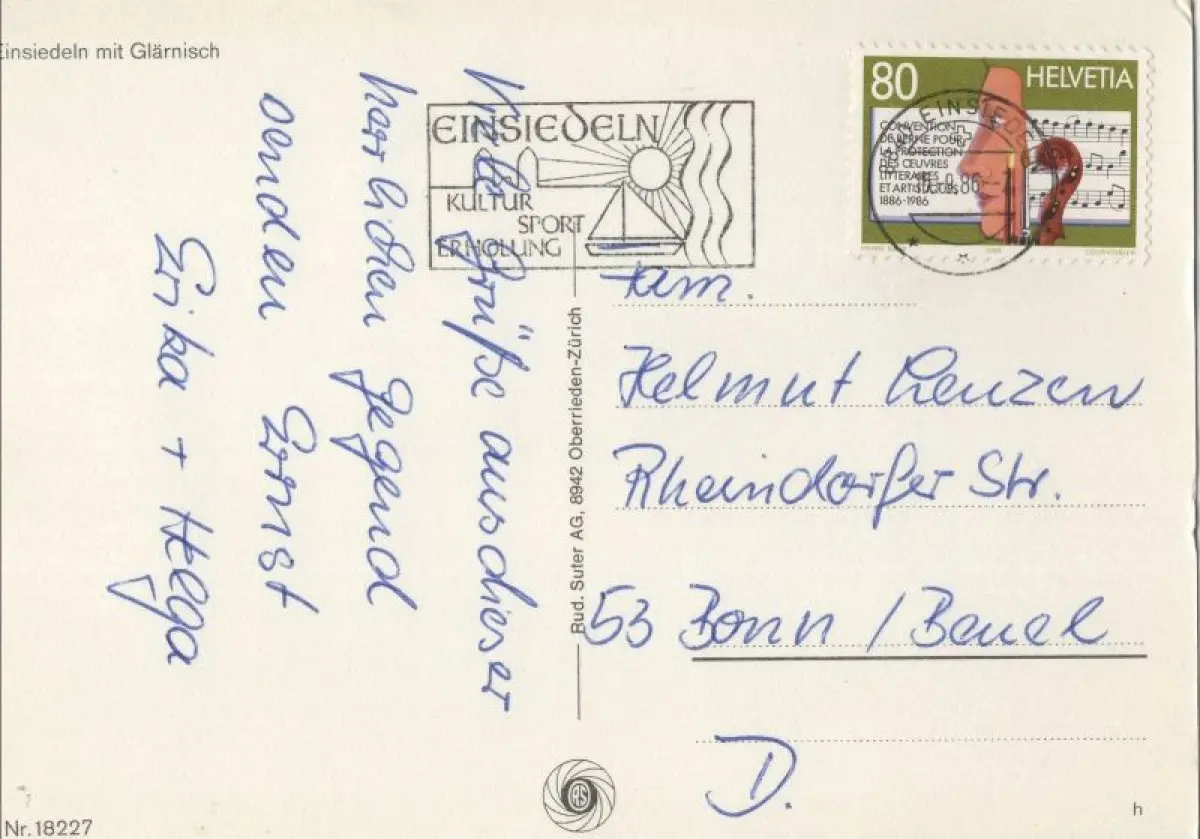 Einsiedeln mit Glärnisch
Viele Grüße aus dieser
herrlichen Gegend
senden Ernst
Erika + Helga
EINSIEDELN
KULTUR
SPORT
ERHOLUNG
80 HELVETIA
CONVENTION
DE BERNE POUR
LA PROTECTION
DES ŒUVRES
LITTERAIRES
ET ARTISTIQUES
1886-1986
COURVOISIER
EINSIEDELN
Fam.
Helmut Lenzen
Rheindorfer Str.
53 Bonn / Beuel
D.
Rud. Suter AG, 8942 Oberrieden-Zürich
RS
Nr. 18227
h